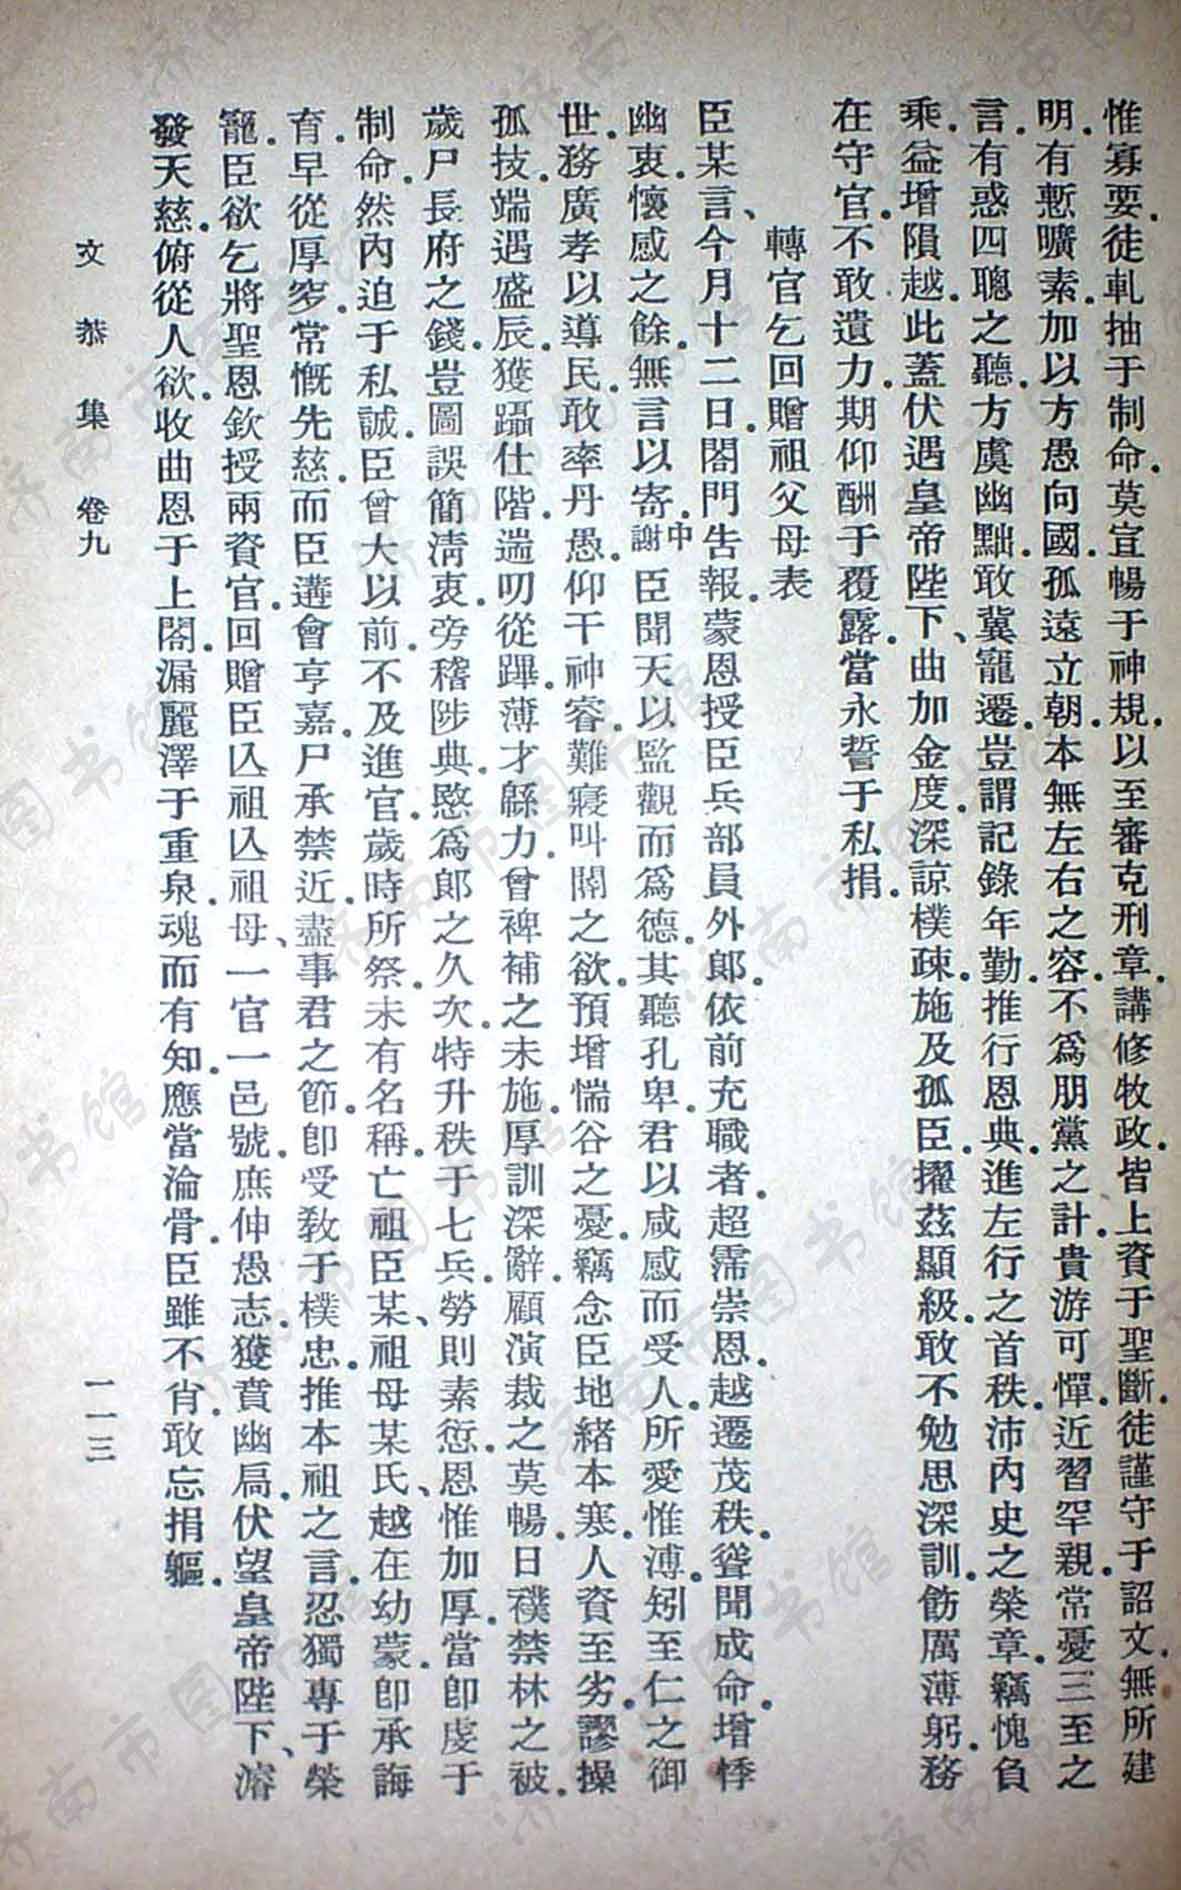 惟寡要.徒軋抽于制命.莫宜暢于神規.以至審克刑章.講修牧政.皆上資于聖斷.徒謹守于詔文.無所建
明.有慙曠素.加以方愚向國.孤遠立朝.本無左右之容.不爲朋黨之計.貴游可憚.近習罕親.常憂三至之
言.有惑四聰之聽.方虞幽黜.敢冀寵遷.豈謂記錄年勤.推行恩典.進左行之首秩.沛內史之榮章.竊愧負
乘.益增隕越.此蓋伏遇皇帝陛下、曲加金度.深諒樸疎.施及孤臣.擢茲顯級.敢不勉思深訓.飭厲薄躬.務
在守官.不敢遺力.期仰酬于覆露.當永誓于私捐.
轉官乞回贈祖父母表
臣某言、今月十二日.閤門告報.蒙恩授臣兵部員外郎.依前充職者.超霈崇恩.越遷茂秩.聳聞成命.增悸
幽衷.懷感之餘.無言以寄.中謝臣聞天以監觀而爲德.其聽孔卑.君以咸感而受人.所愛惟溥.矧至仁之御
世.務廣孝以導民.敢率丹愚.仰干神睿.難寢叫閽之欲.預增惴谷之憂.竊念臣地緒本寒.人資至劣.謬操
孤技.端遇盛辰.獲躡仕階.遄叨從蹕.薄才緜力.曾裨補之未施.厚訓深辭.顧演裁之莫暢.日襆禁林之被.
歲尸長府之錢.豈圖誤簡淸衷.旁稽陟典.愍爲郎之久次.特升秩于七兵.勞則素愆.恩惟加厚.當卽虔于
制命.然內迫于私誠.臣曾大以前.不及進官.歲時所祭.未有名稱.亡祖臣某、祖母某氏、越在幼蒙.卽承誨
育.早從厚窆.常慨先慈.而臣遘會亨嘉.尸承禁近.盡事君之節.卽受敎于樸忠.推本祖之言.忍獨專于榮
寵.臣欲乞將聖恩欽授兩資官.回贈臣亾祖亾祖母、一官一邑號.庶伸愚志.獲賁幽局.伏望皇帝陛下、濬
發天慈.俯從人欲.收曲恩于上閤.漏麗澤于重泉.魂而有知.應當淪骨.臣雖不肖.敢忘捐軀.
文恭集 卷九 一一三